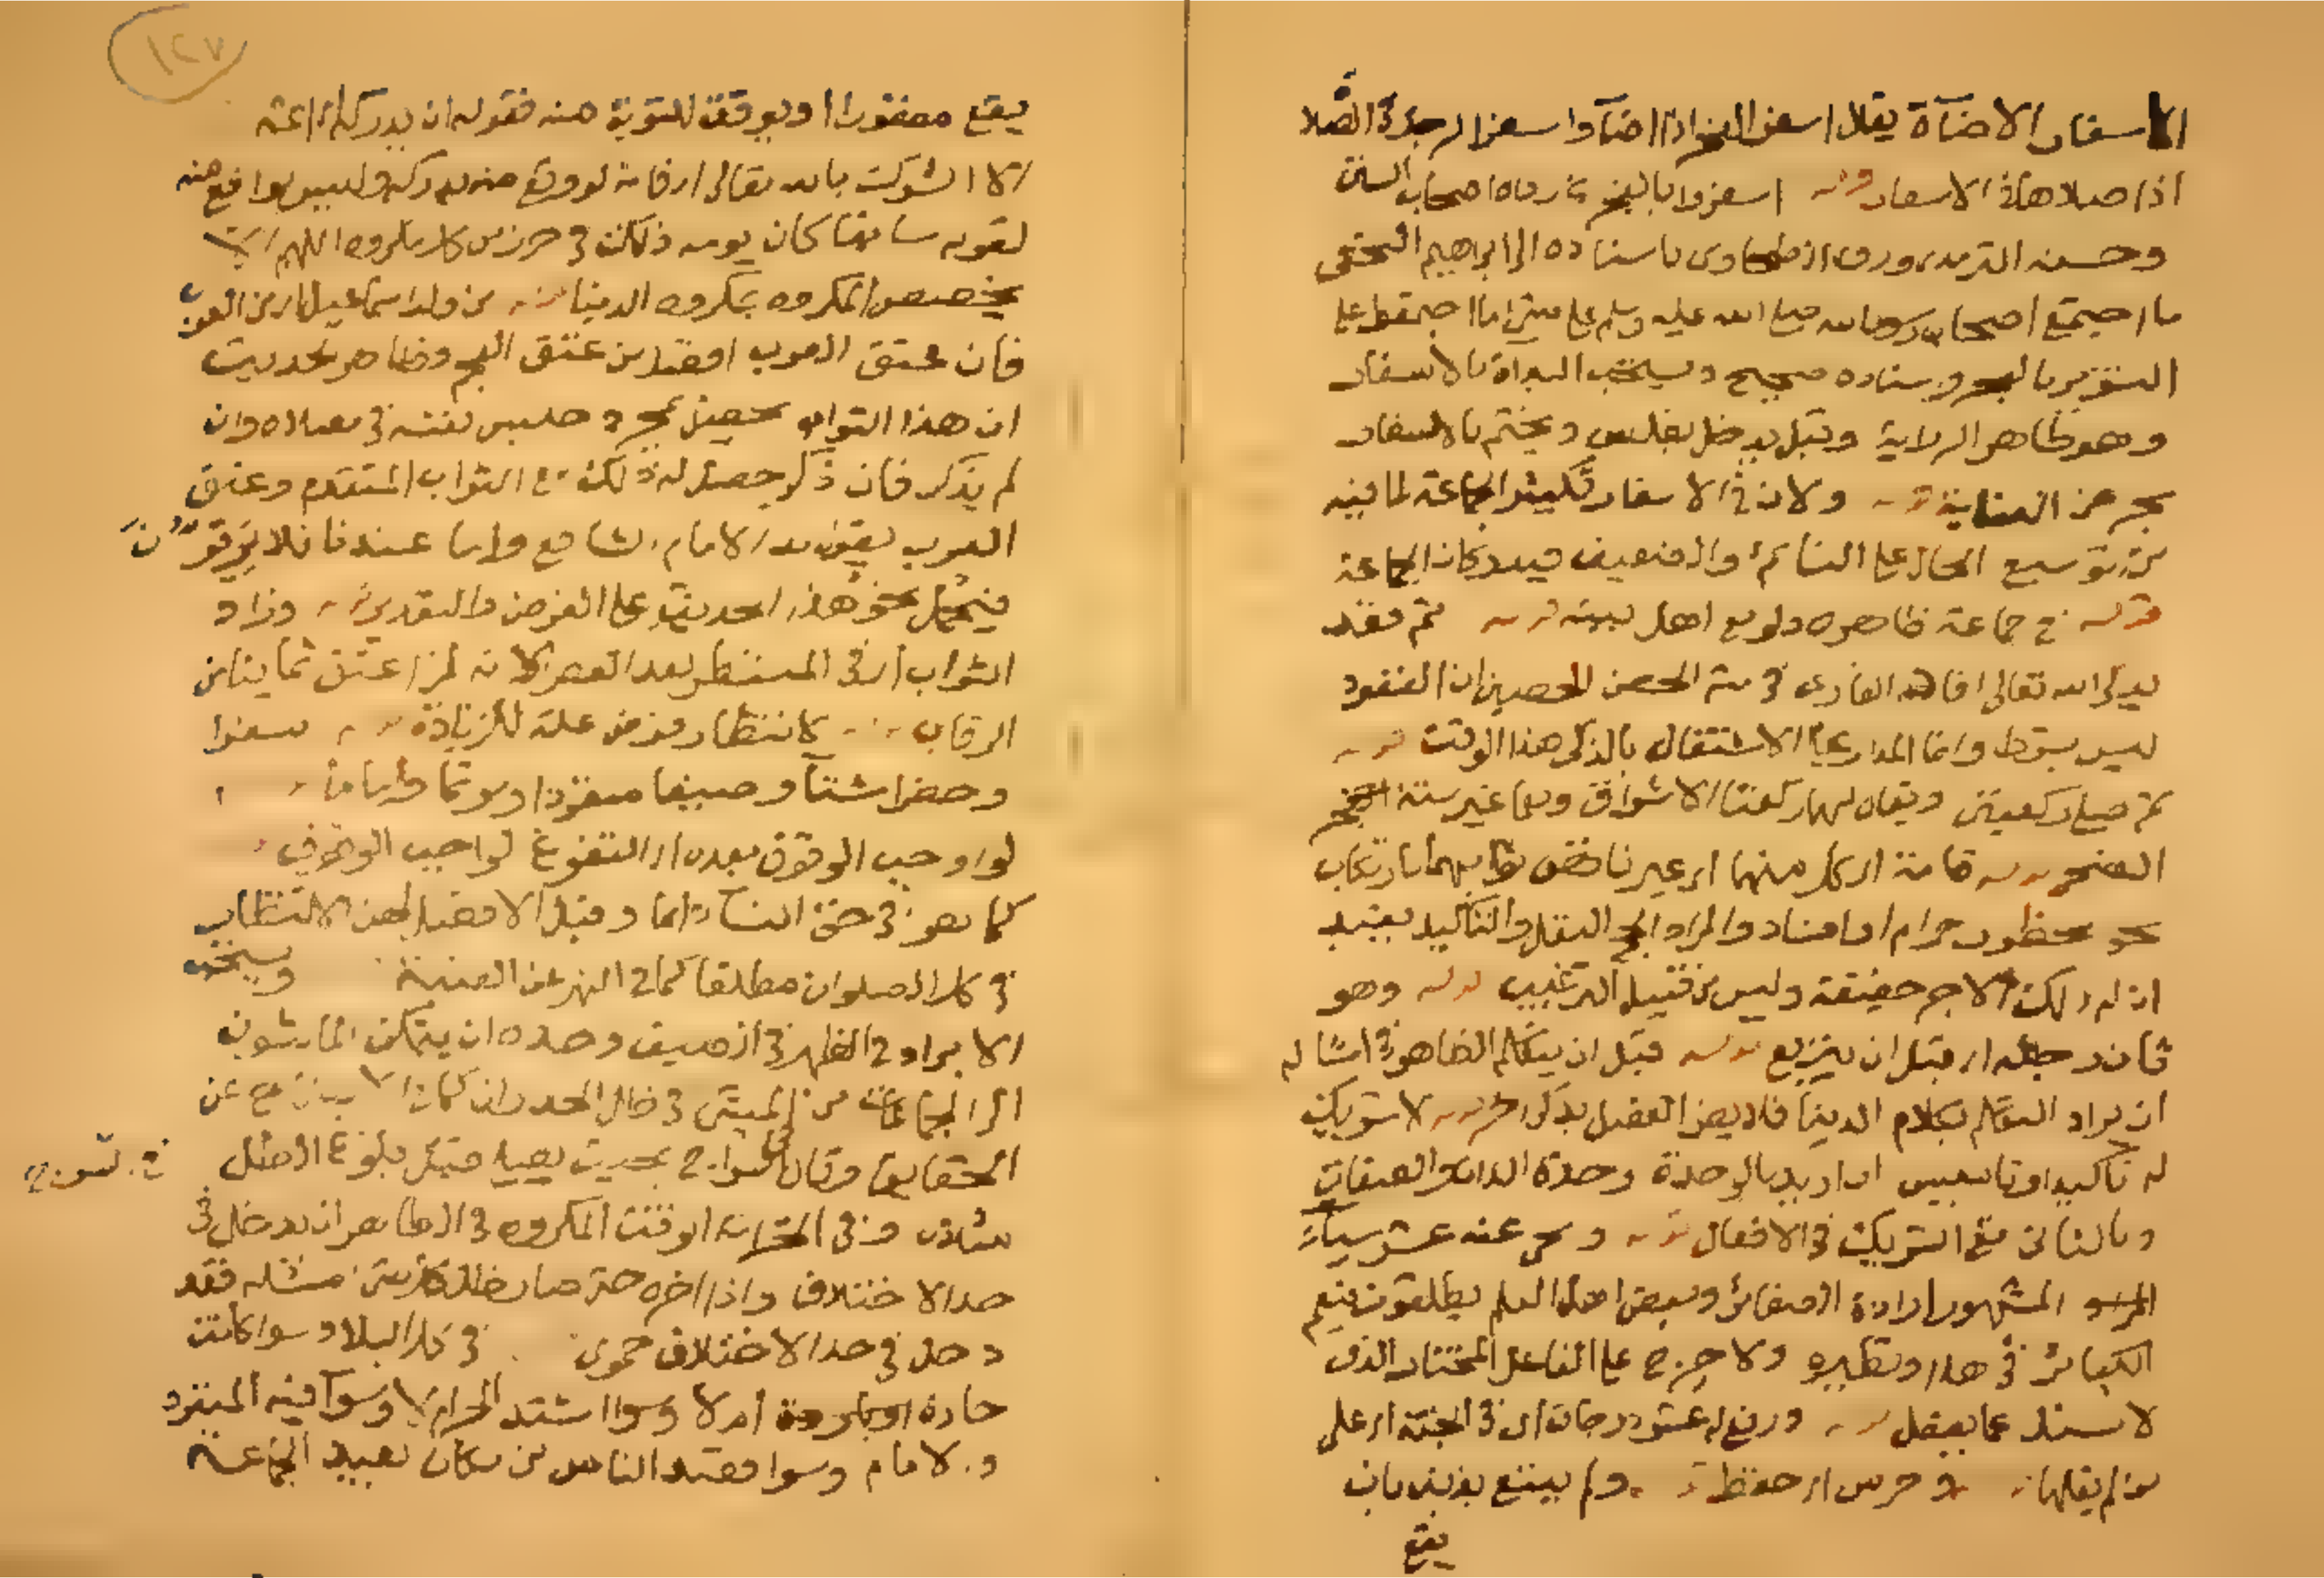 الاسفار الاضآة يقال اسفر الفجر اذا اضآ واسفر الرجل في الصلا
اذا صلاها في الاسفار قوله اسفروا بالفجر رواه اصحاب السنن
وحسنه الترمذي وروى الطحاوي باسناده الى ابراهيم النخعي
ما اجتمع اصحاب رسول الله صلى الله عليه وسلم على شي ما اجتمعوا على
التنوير بالفجر واسناده صحيح ويستحب البداة بالاسفار
وهو ظاهر الرواية وقيل يدخل بغلس ويختم بالاسفار
بحر عن العناية قوله ولان في الاسفار تكثير الجماعة لما فيه
من توسيع الحال على النائم والضعيف فيدركان الجماعة
قوله في جماعة ظاهره ولو مع اهل بيته قوله ثم قعد
يذكر الله تعالى افاد القاري في شرح الحصن الحصين ان القعود
ليس بشرط وانما المدار على الاشتغال بالذكر هذا الوقت قوله
ثم صلى ركعتين ويقال لهما ركعتا الاشراق وهما غير سنة
الضحى قوله تامة اي كل منهما اي غير ناقص ثوابهما بارتكاب
نحو محظور حرام او افساد والمراد النفل والتاكيد يفيد
ان له ذلك الاجر حقيقة وليس من قبيل الترغيب قوله وهو
ثان رجله اي قبل ان يتربع قوله قبل ان يتكلم الظاهر في امثاله
ان يراد التكلم بكلام الدنيا فلا يضر الفصل بذكر اخر قوله لا شريك
له تاكيد او تاسيس ان اريد بالوحدة وحدة الذات والصفات
وبالثاني منع الشريك في الافعال قوله ومحي عنه عشر سيآت
المشهور ارادة الصغائر وبعض اهل العلم يطلقون فيعم
الكبائر في هذا ونظيره ولا حرج على الفاعل المختار الذي
لا يسئل عما يفعل قوله ورفع له عشر درجات اي في الجنة اي على
من لم يقلها قوله وحرس اي حفظ قوله ولم ينبغ بذنب بان
يقع
١٢٧
يقع مغفورا او يوفق للتوبة منه فقوله ان يدركه اي اثمه
الا الشرك بالله تعالى اي فانه لو وقع منه يدركه وليس بواقع منه
لقوله سابقا كان يومه ذلك في حرز من كل مكروه اللهم الا
يخصص المكروه بمكروه الدنيا قوله من ولد اسماعيل اي من العرب
فان عتق العرب افضل من عتق العجم وظاهر الحديث
ان هذا الثواب يحصل بمجرد جلوس نفسه في مصلاه وان
لم يذكر فان ذكر حصل له ذلك مع الثواب المتقدم وعتق
العرب يقول به الامام الشافعي واما عندنا فلا يرقون
فيحمل نحو هذا الحديث على الفرض والتقدير قوله وزاد
الثواب اي في المنتظر بعد العصر لانه لمن اعتق ثمانيا من
الرقاب قوله لانتظار فرض علة للزيادة قوله سفرا
وحضرا شتآ وصيفا منفردا او مؤتما واماما
لواجب الوقوف بعده اي التفرغ لواجب الوقوف
كما هو في حق النسآ دائما وقيل الافضل لهن الانتظار
في كل الصلوات مطلقا كما في النهر عن القنية ويستحب
الابراد في الظهر في الصيف وحده ان يتمكن الماشون
الى الجماعات من المشي في ظل الجدران كما في عن
الحقايق وقال في السراج بحيث يصليها قبل بلوغ الظل
مثله وفي الخزانة الوقت المكروه في الظاهر ان يدخل في
حد الاختلاف واذا اخره حتى صار ظل كل شي مثله فقد
دخل في حد الاختلاف حموي في كل البلاد سوا كانت
حارة او باردة ام لا وسوا اشتد الحر ام لا وسوآ فيه المنفرد
والامام وسوا قصد الناس من مكان بعيد الجماعة